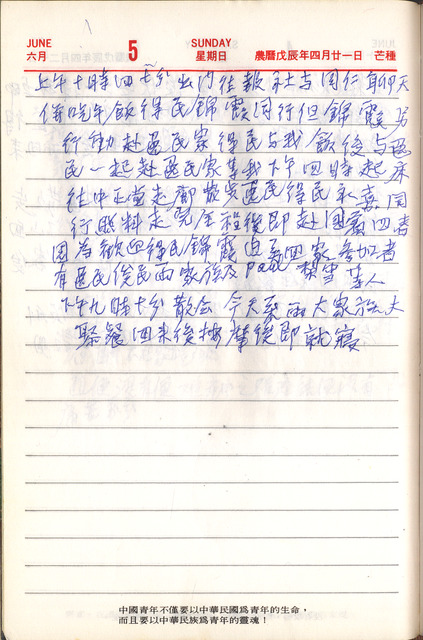 JUNE
六月
5
SUNDAY
星期日
農曆戊辰年四月廿一日 芒種
JUNE
上午十時四十分出門往報社与同仁聊天
俟吃午飯得民錦霞同行但錦霞另
行動赴區民家得民与我飯後与區
民一起赴區民家等我下午四時起床
往中正堂走廊 區民得民永嘉同
行照料走完全程後即赴國賓四春
因為歡迎得民錦霞 家参加者
有區民俊民兩家 及 Paul 等人
下午九時十分散会今天 大家 大
聚餐回來後按摩後即就寢
中國青年不僅要以中華民國爲青年的生命，
而且要以中華民族爲青年的靈魂！